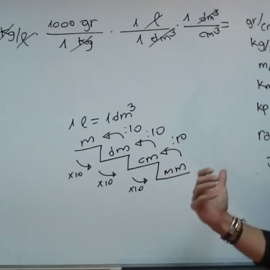 kg/l · 1000 gr / 1 kg · 1 l / 1 dm³ · 1 dm³ / cm³ =
gr/c
kg/
m/
k
kp
ra
1 l = 1 dm³
m :10
dm :10
cm :10
mm
x10 x10 x10